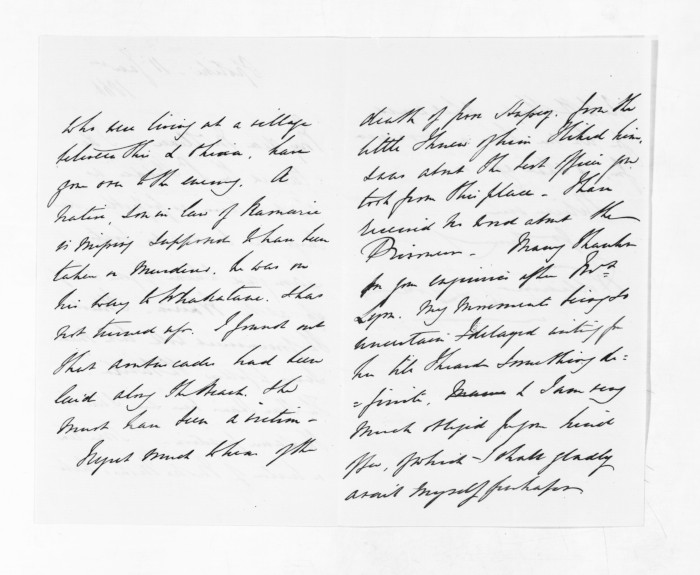 who were living at a village
between this & Ohiwa, have
gone over to the enemy. A
native, Son in law of Ramarie
is missing supposed to have been
taken or Murdered. he was on
his way to Whakatane. & has
not turned up. I found out
that ambuscades had been
laid along the Beach. & he
must have been a victim -
Regret much to hear of the
death of from the
little I knew of him I liked him,
& was about the best officer you
took from this place - I have
received no word about the
Prisoners - Many thanks
for your enquiries after Mrs
Lyon. My movements being so
uncertain I delayed writing for
her till I heard something de=
=finite, & I am very
much obliged for your kind
offer, of which I shall gladly
avail myself perhaps